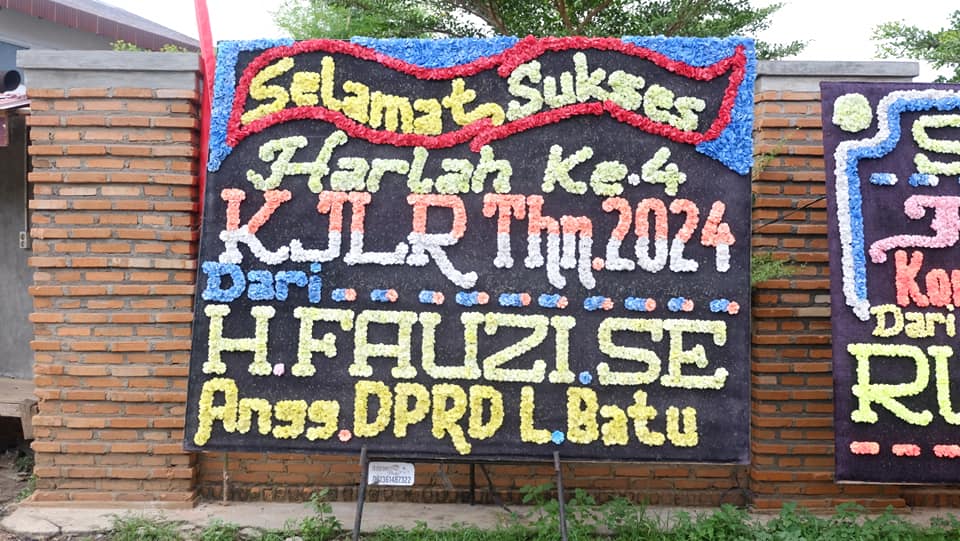 Selamat Sukses
Harlah Ke.4
KJLR Thn.2024
Dari
H.FAUZI.SE
Angg.DPRD L.Batu
Dari
RU